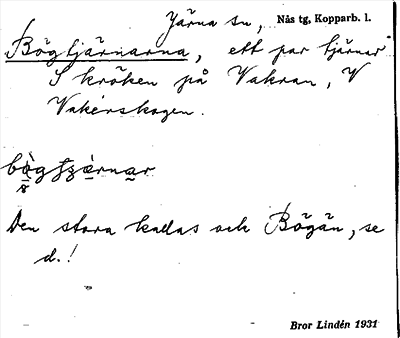 Järna sn, Nås tg, Kopparb. l.
Bögtjärnarna, ett par tjärnar
S kröken på Vakran, V
Vakérskogen.
Den stora kallas och Bögän, se
d.!
Bror Lindén 1931